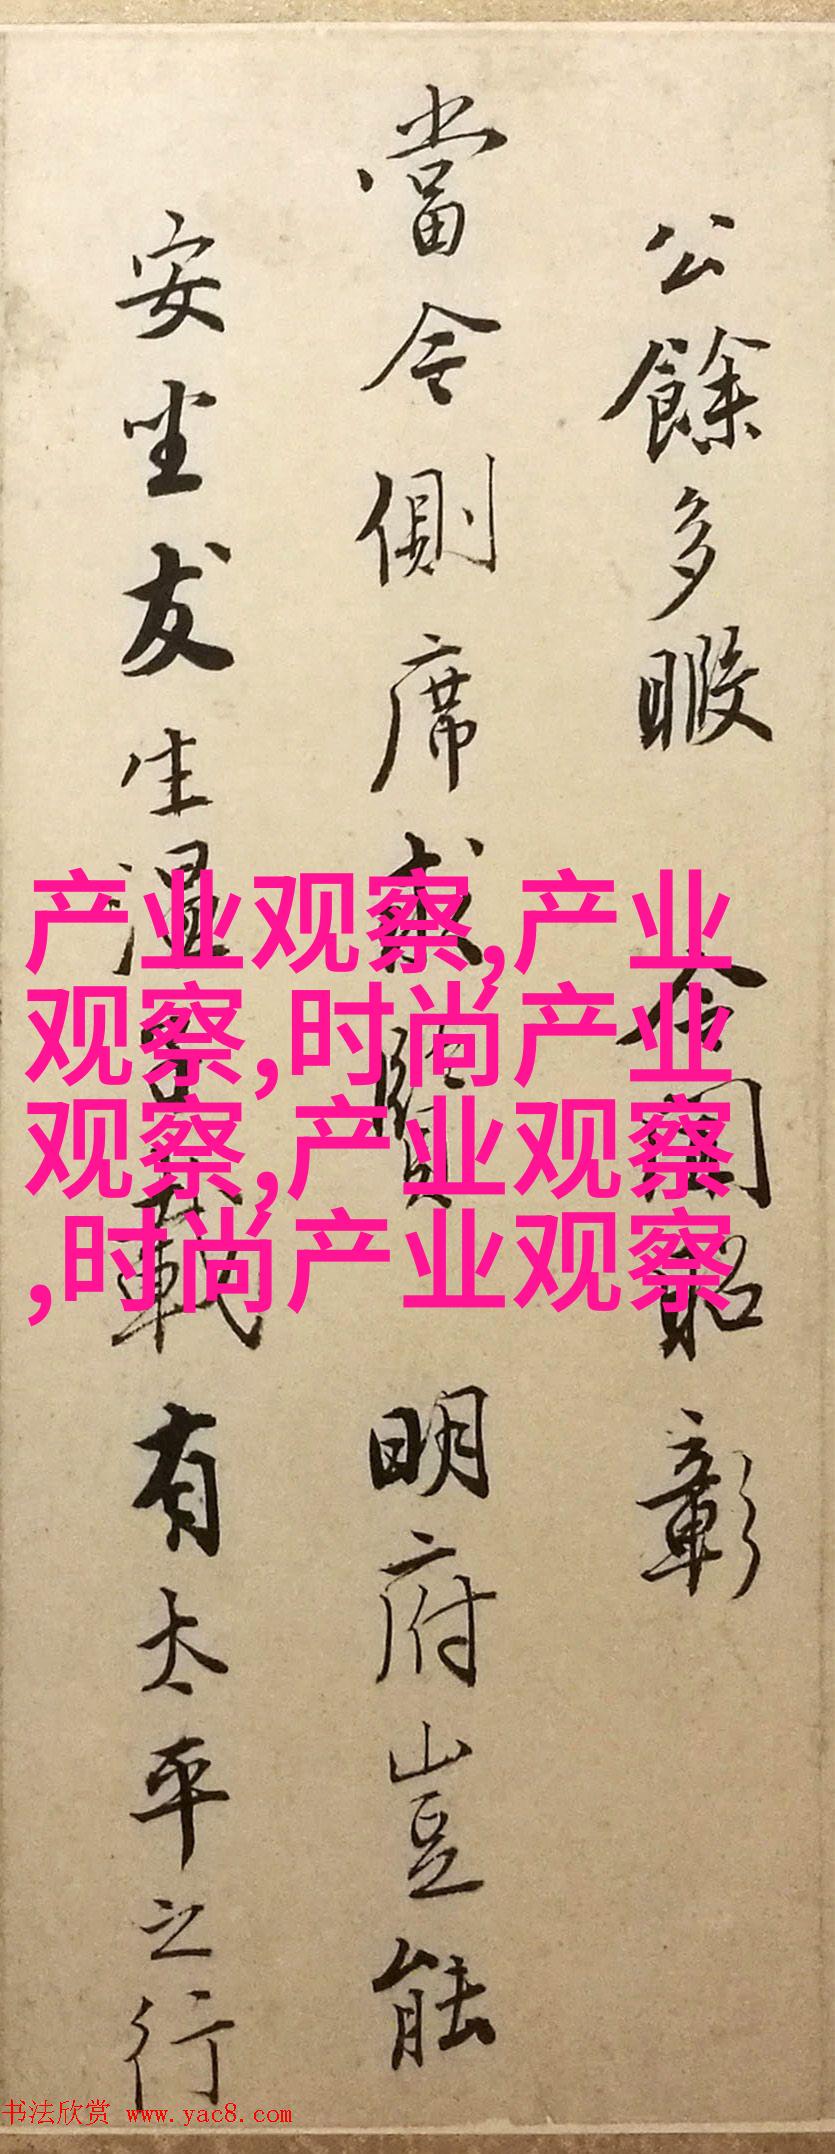 公餘多暇 令聞昭彰
當今側席求賢 明府豈能
安坐友生溫 載有太平之行
产业观察,产业
观察,时尚产业
观察,产业观察
,时尚产业观察
书法欣赏 www.yac8.com